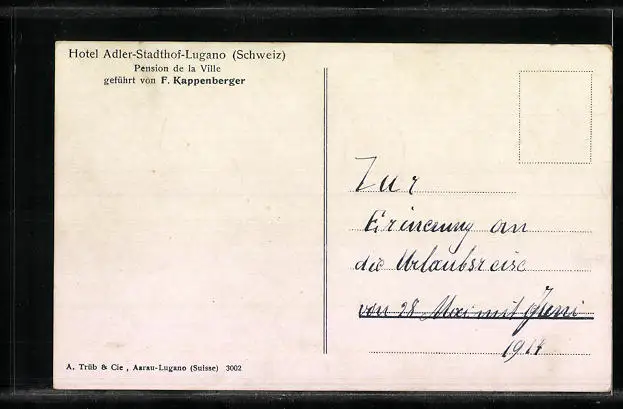 Hotel Adler-Stadthof-Lugano (Schweiz)
Pension de la Ville
geführt von F. Kappenberger
Zur
Erinerung an
die Urlaubsreise
von 28 Mai mit Juni
1914
A. Trüb & Cie, Aarau-Lugano (Suisse) 3002